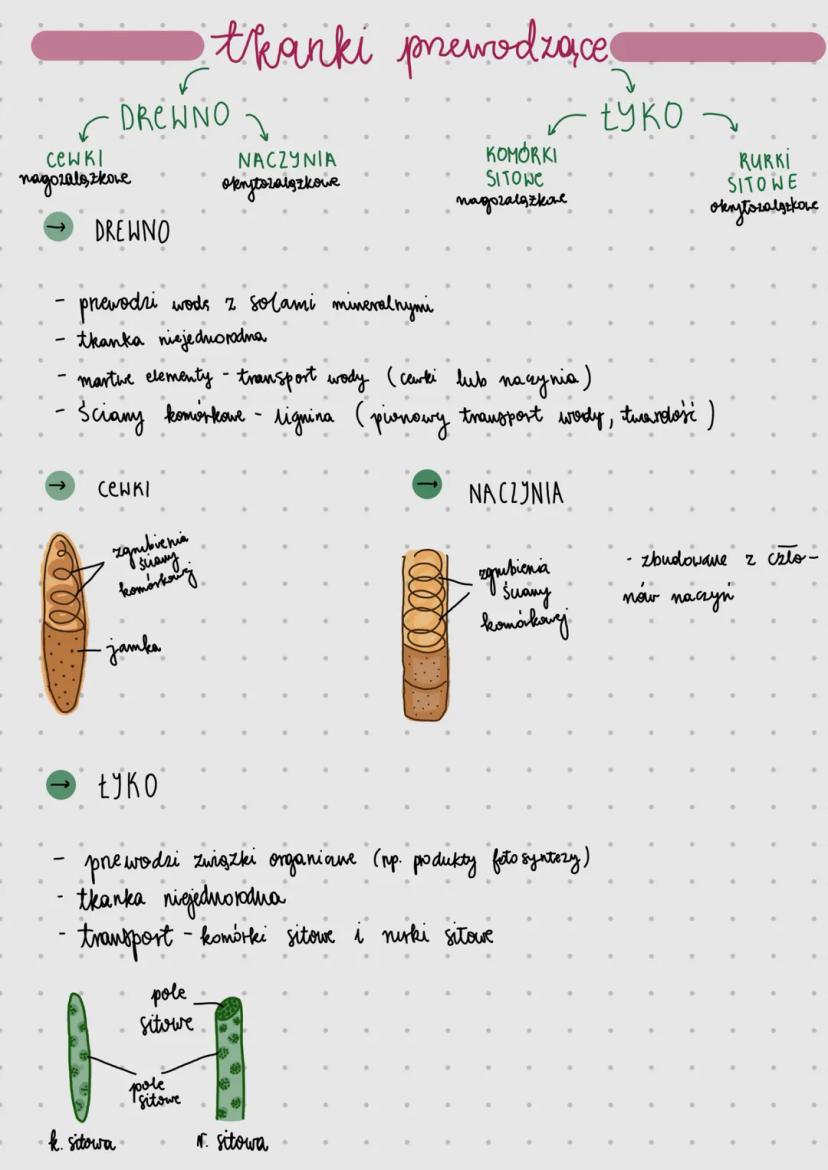 tkanki przewodzące
DREWNO
ŁYKO
CEWKI
nagozalążkowe
NACZYNIA
okrytozalążkowe
KOMÓRKI
SITOWE
nagozalążkowe
RURKI
SITOWE
okrytozalążkowe
→ DREWNO
- przewodzi wodę z solami mineralnymi
- tkanka niejednorodna
- martwe elementy - transport wody (cewki lub naczynia)
- ściany komórkowe - lignina (pionowy transport wody, twardość)
→ CEWKI
zgrubienia
ściany
komórkowej
jamka
→ NACZYNIA
zgrubienia
ściany
komórkowej
- zbudowane z czło-
nów naczyń
→ ŁYKO
- przewodzi związki organiczne (np. produkty fotosyntezy)
- tkanka niejednorodna
- transport - komórki sitowe i rurki sitowe
pole
sitowe
pole
sitowe
k. sitowa
r. sitowa